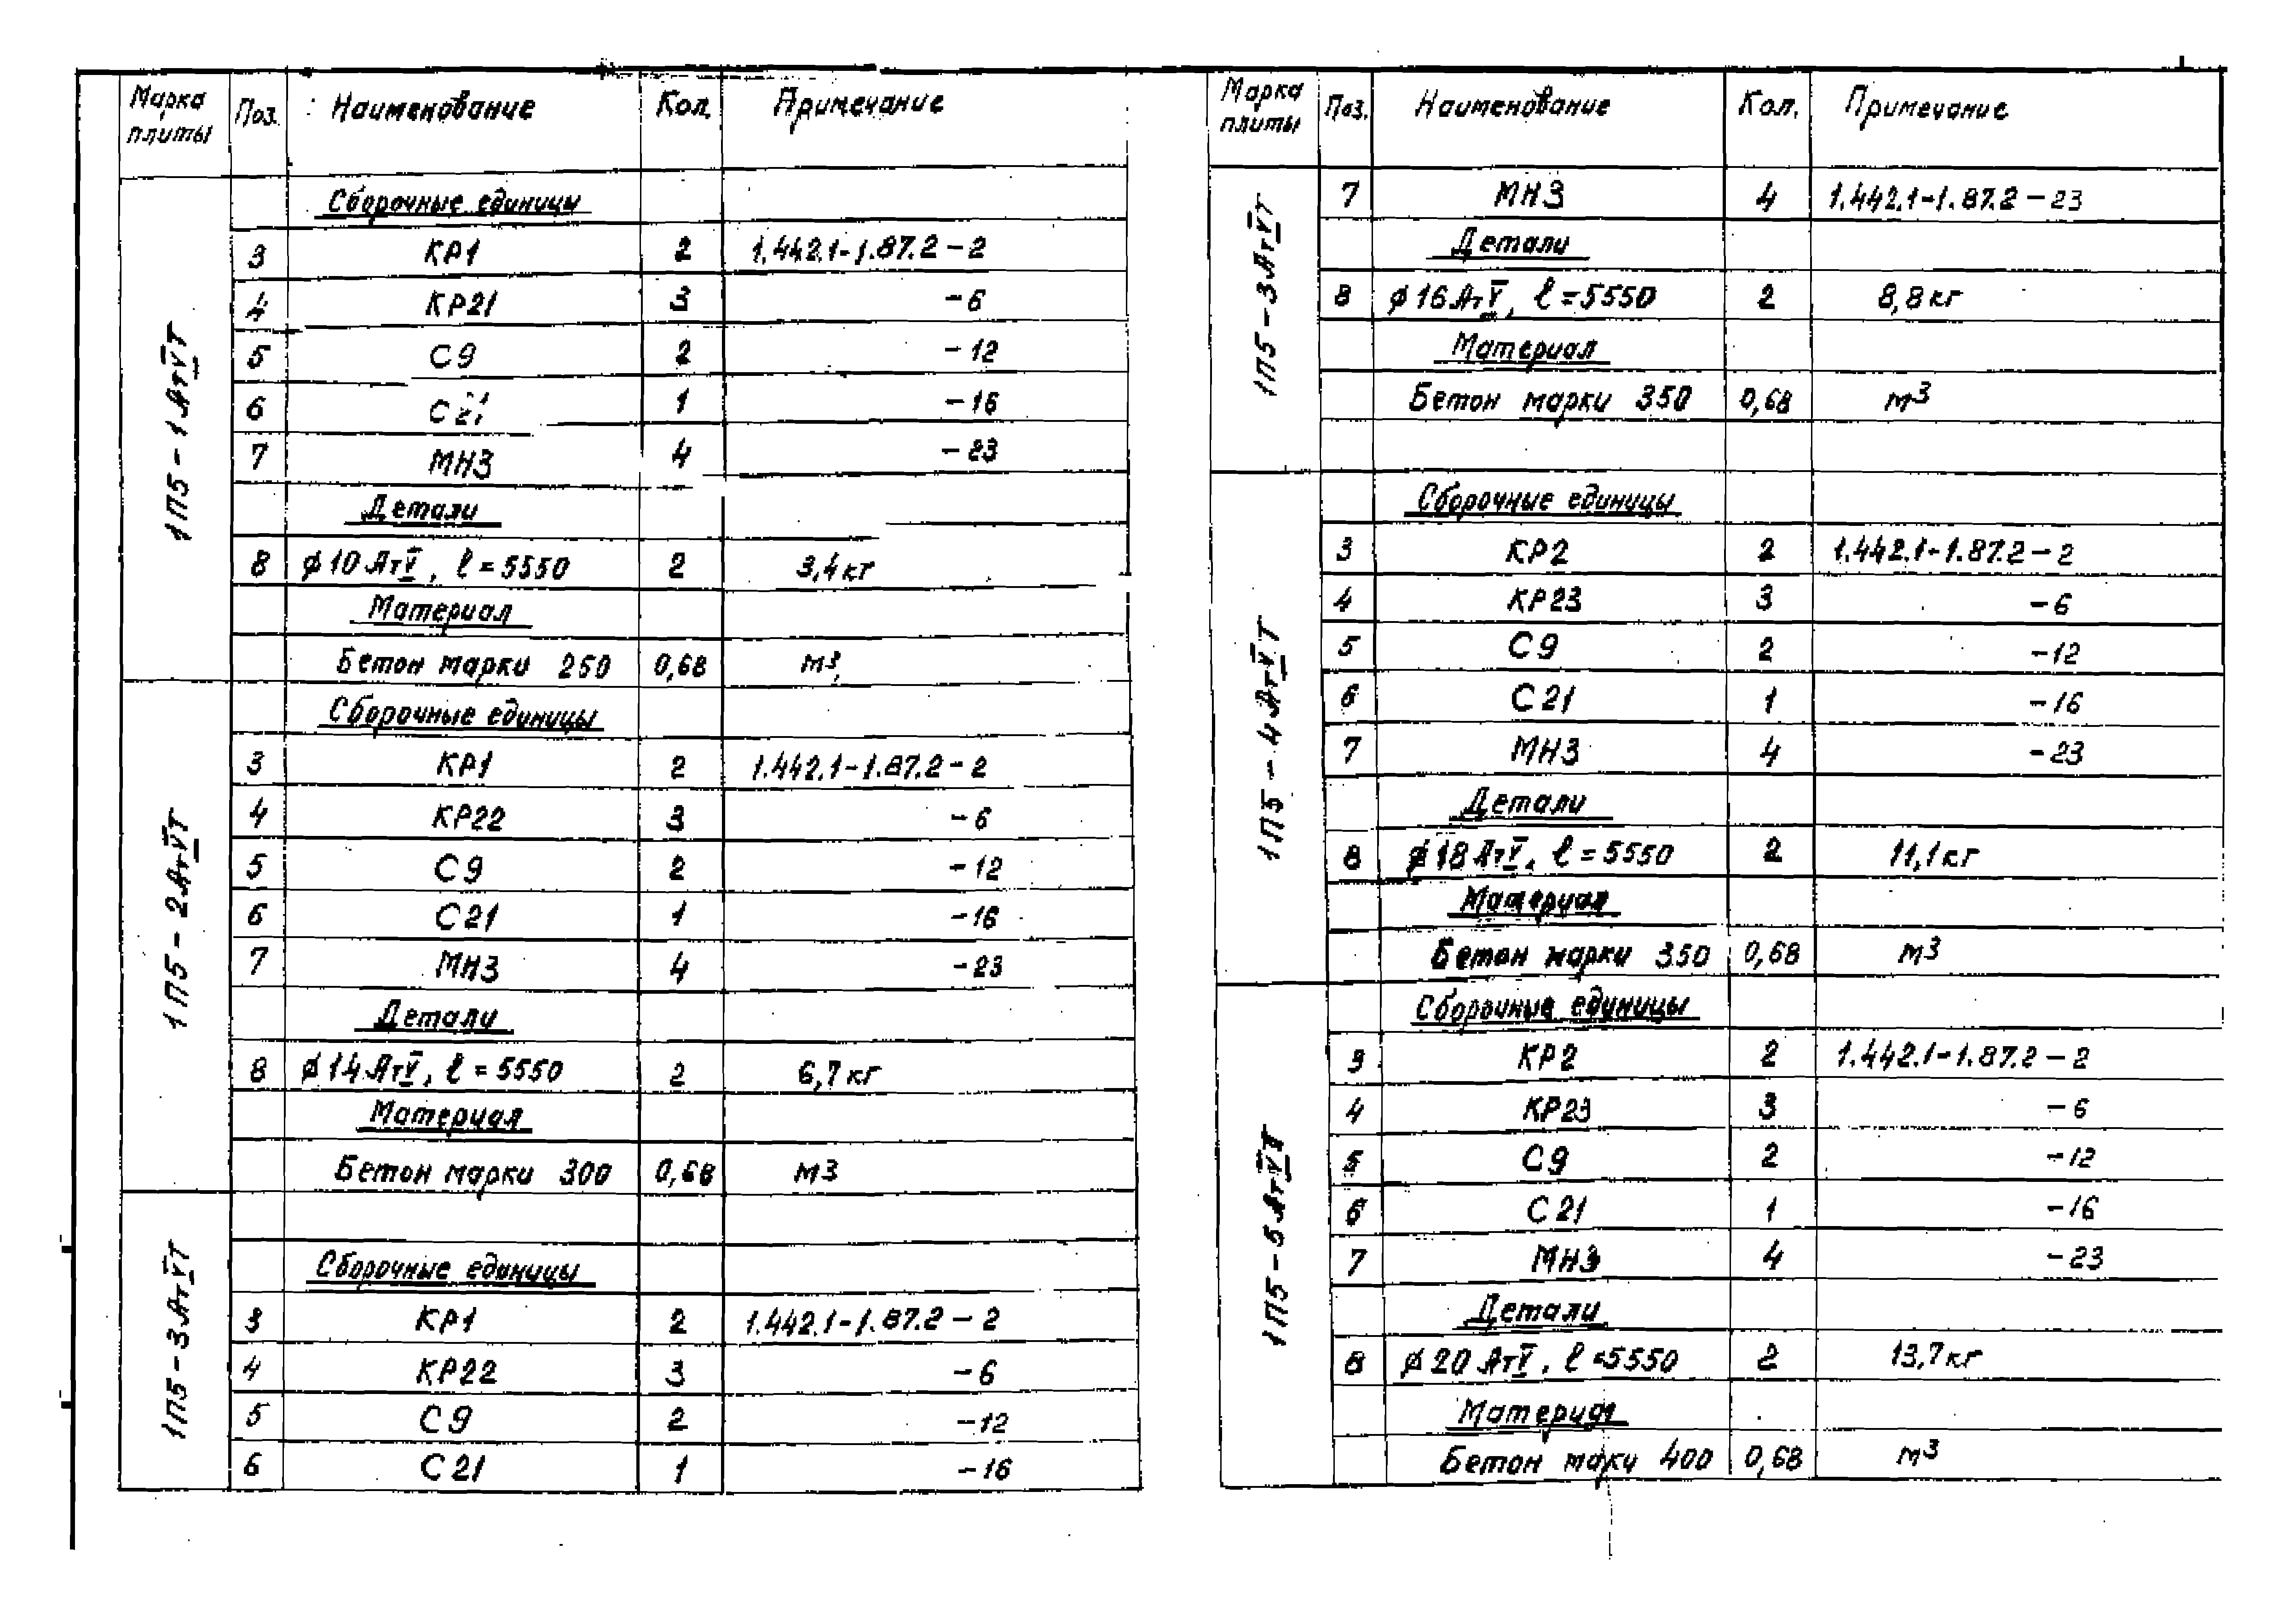 Марка плиты Поз. Наименование Кол. Примечание
1П5-1АтVТ
Сборочные единицы
3 КР1 2 1.442.1-1.87.2-2
4 КР21 3 -6
5 С9 2 -12
6 С21 1 -16
7 МН3 4 -23
Детали
8 ϕ10АтV, ℓ=5550 2 3,4кг
Материал
Бетон марки 250 0,68 м3
1П5-2АтVТ
Сборочные единицы
3 КР1 2 1.442.1-1.87.2-2
4 КР22 3 -6
5 С9 2 -12
6 С21 1 -16
7 МН3 4 -23
Детали
8 ϕ14АтV, ℓ=5550 2 6,7кг
Материал
Бетон марки 300 0,68 м3
1П5-3АтVТ
Сборочные единицы
3 КР1 2 1.442.1-1.87.2-2
4 КР22 3 -6
5 С9 2 -12
6 С21 1 -16
Марка плиты Поз. Наименование Кол. Примечание
1П5-3АтVТ
7 МН3 4 1.442.1-1.87.2-23
Детали
8 ϕ16АтV, ℓ=5550 2 8,8кг
Материал
Бетон марки 350 0,68 м3
1П5-4АтVТ
Сборочные единицы
3 КР2 2 1.442.1-1.87.2-2
4 КР23 3 -6
5 С9 2 -12
6 С21 1 -16
7 МН3 4 -23
Детали
8 ϕ18АтV, ℓ=5550 2 11,1кг
Материал
Бетон марки 350 0,68 м3
1П5-5АтVТ
Сборочные единицы
3 КР2 2 1.442.1-1.87.2-2
4 КР23 3 -6
5 С9 2 -12
6 С21 1 -16
7 МН3 4 -23
Детали
8 ϕ20АтV, ℓ=5550 2 13,7кг
Материал
Бетон маки 400 0,68 м3